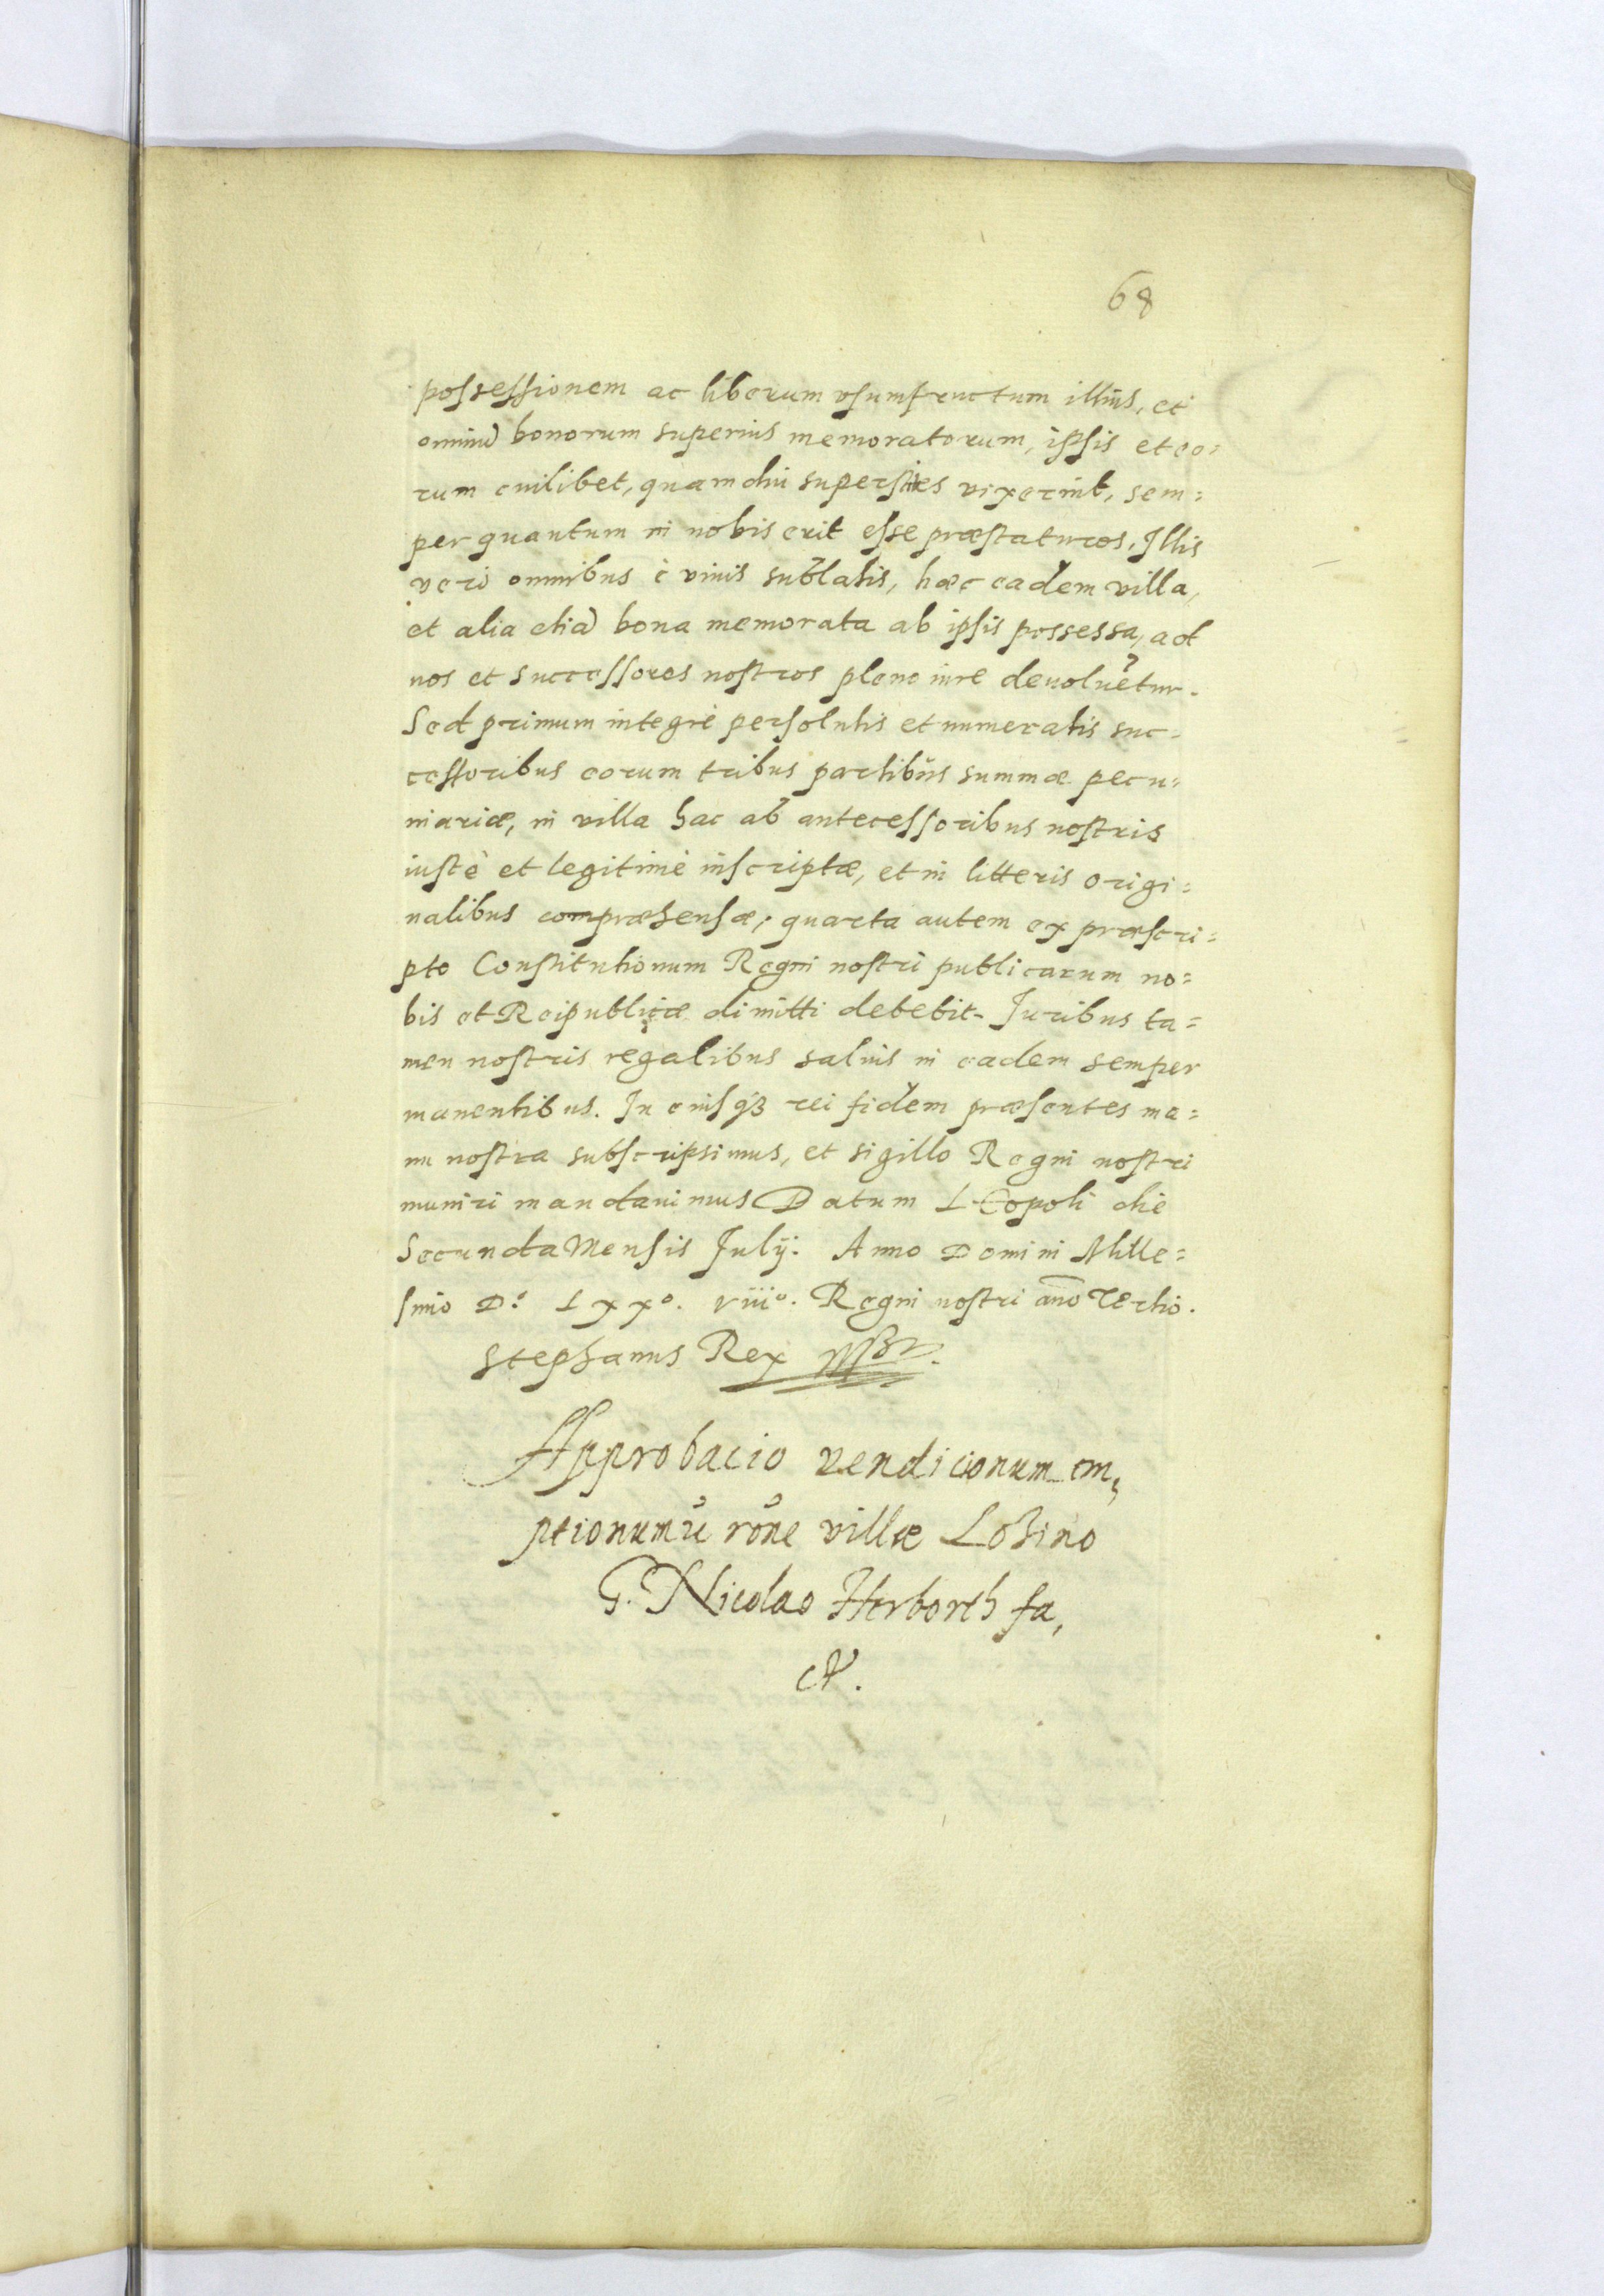 68
possessionem ac liberum vsumfructum illius, et
omniu bonorum superius memoratorum, ipsis et eo=
rum cuilibet, quamdiu superstites vixerint, sem=
per quantum in nobis erit esse præstaturos, Illis
verò omnibus è viuis sublatis, hæc eadem villa,
et alia etiā bona memorata ab ipsis possessa, ad
nos et successores nostros pleno iure deuoluētur.
Sed primum integrè persolutis et numeratis suc=
cessoribus eorum tribus partibus summæ pecu=
niariæ, in villa hac ab antecessoribus nostris
iustè et legitimè inscriptæ, et in litteris origi=
nalibus compræhensæ, quarta autem ex præscri=
pto Constitutionum Regni nostri publicarum no=
bis et Reipublicæ dimitti debebit. Iuribus ta=
men nostris regalibus saluis in eadem semper
manentibus. In cuiusqȝ rei fidem præsentes ma=
nu nostra subscripsimus, et sigillo Regni nostri
muniri mandauimus Datum Leopoli die
Secunda Mensis Iulij: Anno Domini Mille=
simo D.º Lxxº. viiiº. Regni nostri año Tertio.
Stephanus Rex
Approbacio vendicionum em,
ptionumū rōne villæ Losino
G. Nicolao Herborth fa,
ct.